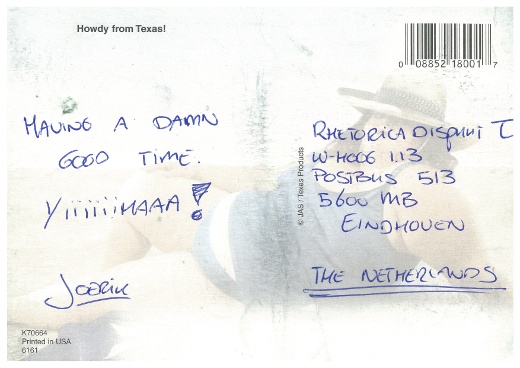 Howdy from Texas!
0 08852 18001 7
HAVING A DAMN
GOOD TIME.
YiiiiiiHAAA!
JOERIK
© JAS / Texas Products
RHETORICA DISPUUT
W-HOOG 1.13
POSTBUS 513
5600 MB
EINDHOVEN
THE NETHERLANDS
K70664
Printed in USA
6161